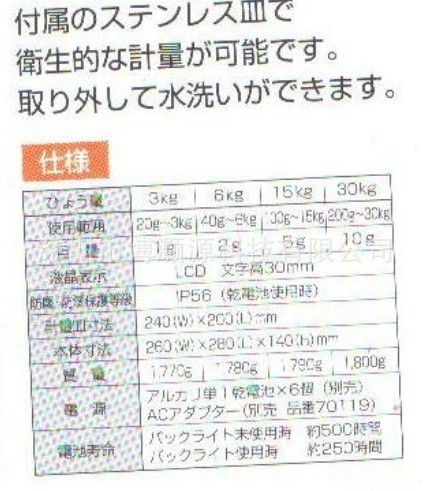 付属のステンレス皿で
衛生的な計量が可能です。
取り外して水洗いができます。
仕様
ひょう量 3kg 6kg 15kg 30kg
使用範囲 20g~3kg 40g~6kg 100g~15kg 200g~30kg
目量 1g 2g 5g 10g
液晶表示 LCD 文字高30mm
防塵・防浮保護等級 IP56 (乾電池使用時)
計量皿寸法 240(W)×200(L)mm
本体寸法 260(W)×280(L)×140(h)mm
質量 1,770g 1,780g 1,790g 1,800g
電源 アルカリ単1乾電池×6個 (別売)
ACアダプター(別売 品番70119)
電池寿命 バックライト未使用時 約500時間
バックライト使用時 約250時間
源科技有限公司